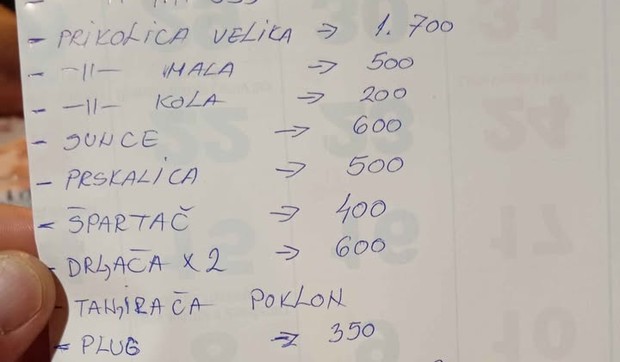 - PRIKOLICA VELIKA → 1.700
- -11- MALA → 500
- -11- KOLA → 200
- SUNCE → 600
- PRSKALICA → 500
- ŠPARTAČ → 400
- DRLJAČA X 2 → 600
- TANJIRAČA POKLON
- PLUG → 350